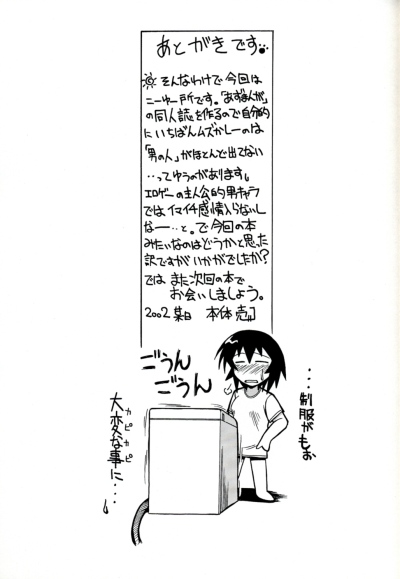 あとがきです…
☼そんなわけで今回は
こーゆー所です。「あずまんが」
の同人誌を作るので自分的
にいちばんムズかしーのは
「男の人」がほとんど出てない
…ってゆうのがあります。
エロゲーの主人公的男キャラ
ではイマイチ感情入らないし
なー…と。で今回の本
みたいなのはどうかと思った
訳ですがいかがでしたか?
では また次回の本で
お会いしましょう。
2002 某日 本体売
ごうん
ごうん
…制服がもお
大変な事に…
カピカピ